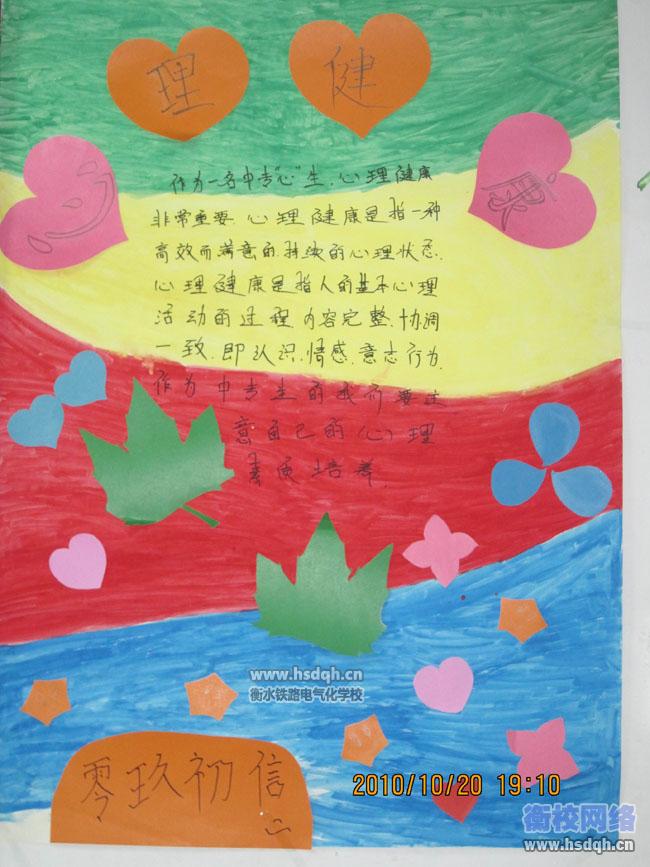 理 健
心 康
作为一名中专“心”生,心理健康
非常重要.心理健康是指一种
高效而满意的持续的心理状态.
心理健康是指人的基本心理
活动的过程内容完整、协调
一致、即认识、情感、意志行为、
作为中专生的我们要注
意自己的心理
素质培养.
www.hsdqh.cn
衡水铁路电气化学校
零玖初信
二
2010/10/20 19:10
衡校网络
www.hsdqh.cn